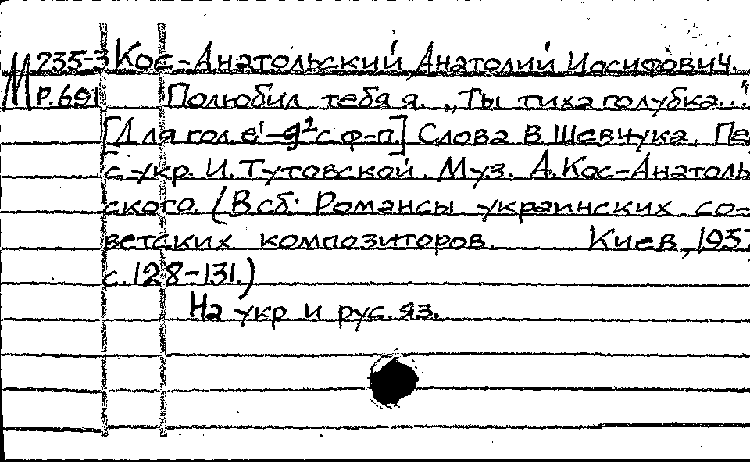 М 735-3 Кос-Анатольский Анатолий Иосифович.
Р.691 Полюбил тебя я. „Ты тиха голубка..."
[Для гол. е¹-g² с ф-п.] Слова В. Шевчука. Пе
с укр. И. Тутовской. Муз. А. Кос-Анатоль
ского. (В сб: Романсы украинских со-
ветских композиторов. Киев, 1957
с. 128-131.)
На укр и рус. яз.